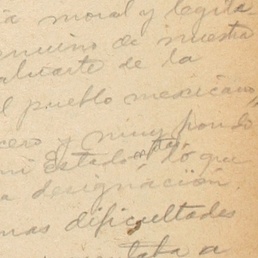 ia moral y legíta
enuino de nuestra
aluarte de la
el pueblo mexicano,
cero y muy hondo
mi Estado esta lo que
a designación.
mas dificultades
entaba a